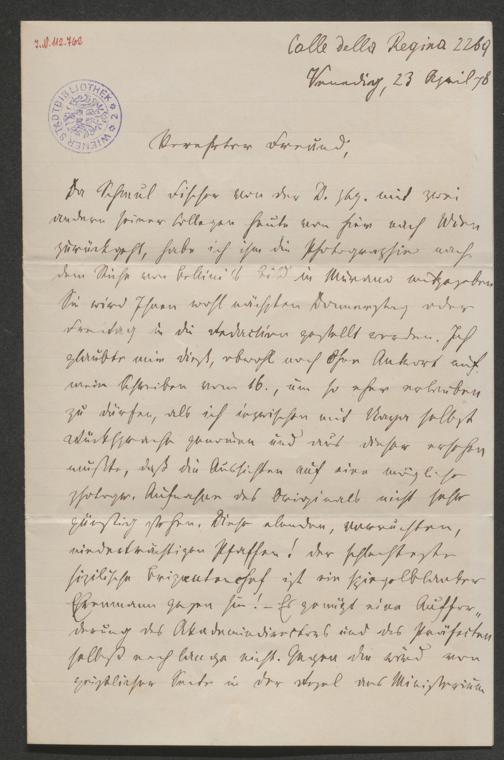 J.N. 112.762
Calle della Regina 2269
Venedig, 23 April 78
WIENER STADTBIBLIOTHEK
Verehrter Freund,
Da Schmul Fischer von der D. Ztg. mit zwei
andern seiner Collegen heute von hier nach Wien
zurückgeht, habe ich ihm die Photographie nach
dem Stiche von Bellini's Bild in Murano mitgegeben
Sie wird Ihnen wohl nächsten Donnerstag oder
Freitag in die Redaction gestellt werden. Ich
glaubte mir dieß, obwohl noch ohne Antwort auf
mein Schreiben vom 16., um so eher erlauben
zu dürfen, als ich inzwischen mit Naya selbst
Rücksprache genommen und aus dieser ersehen
mußte, daß die Aussichten auf eine mögliche
photogr. Aufnahme des Originals nicht sehr
günstig stehen. Diese elenden, verruchten,
niederträchtigen Pfaffen! Der schlechteste
sizilische Brigantenchef ist ein spiegelblanker
Ehrenmann gegen sie! – Es genügt eine Auffor-
derung des Akademiedirectors und des Präfecten
selbst noch lange nicht. Gegen die wird von
geistlicher Seite in der Regel ans Ministerium